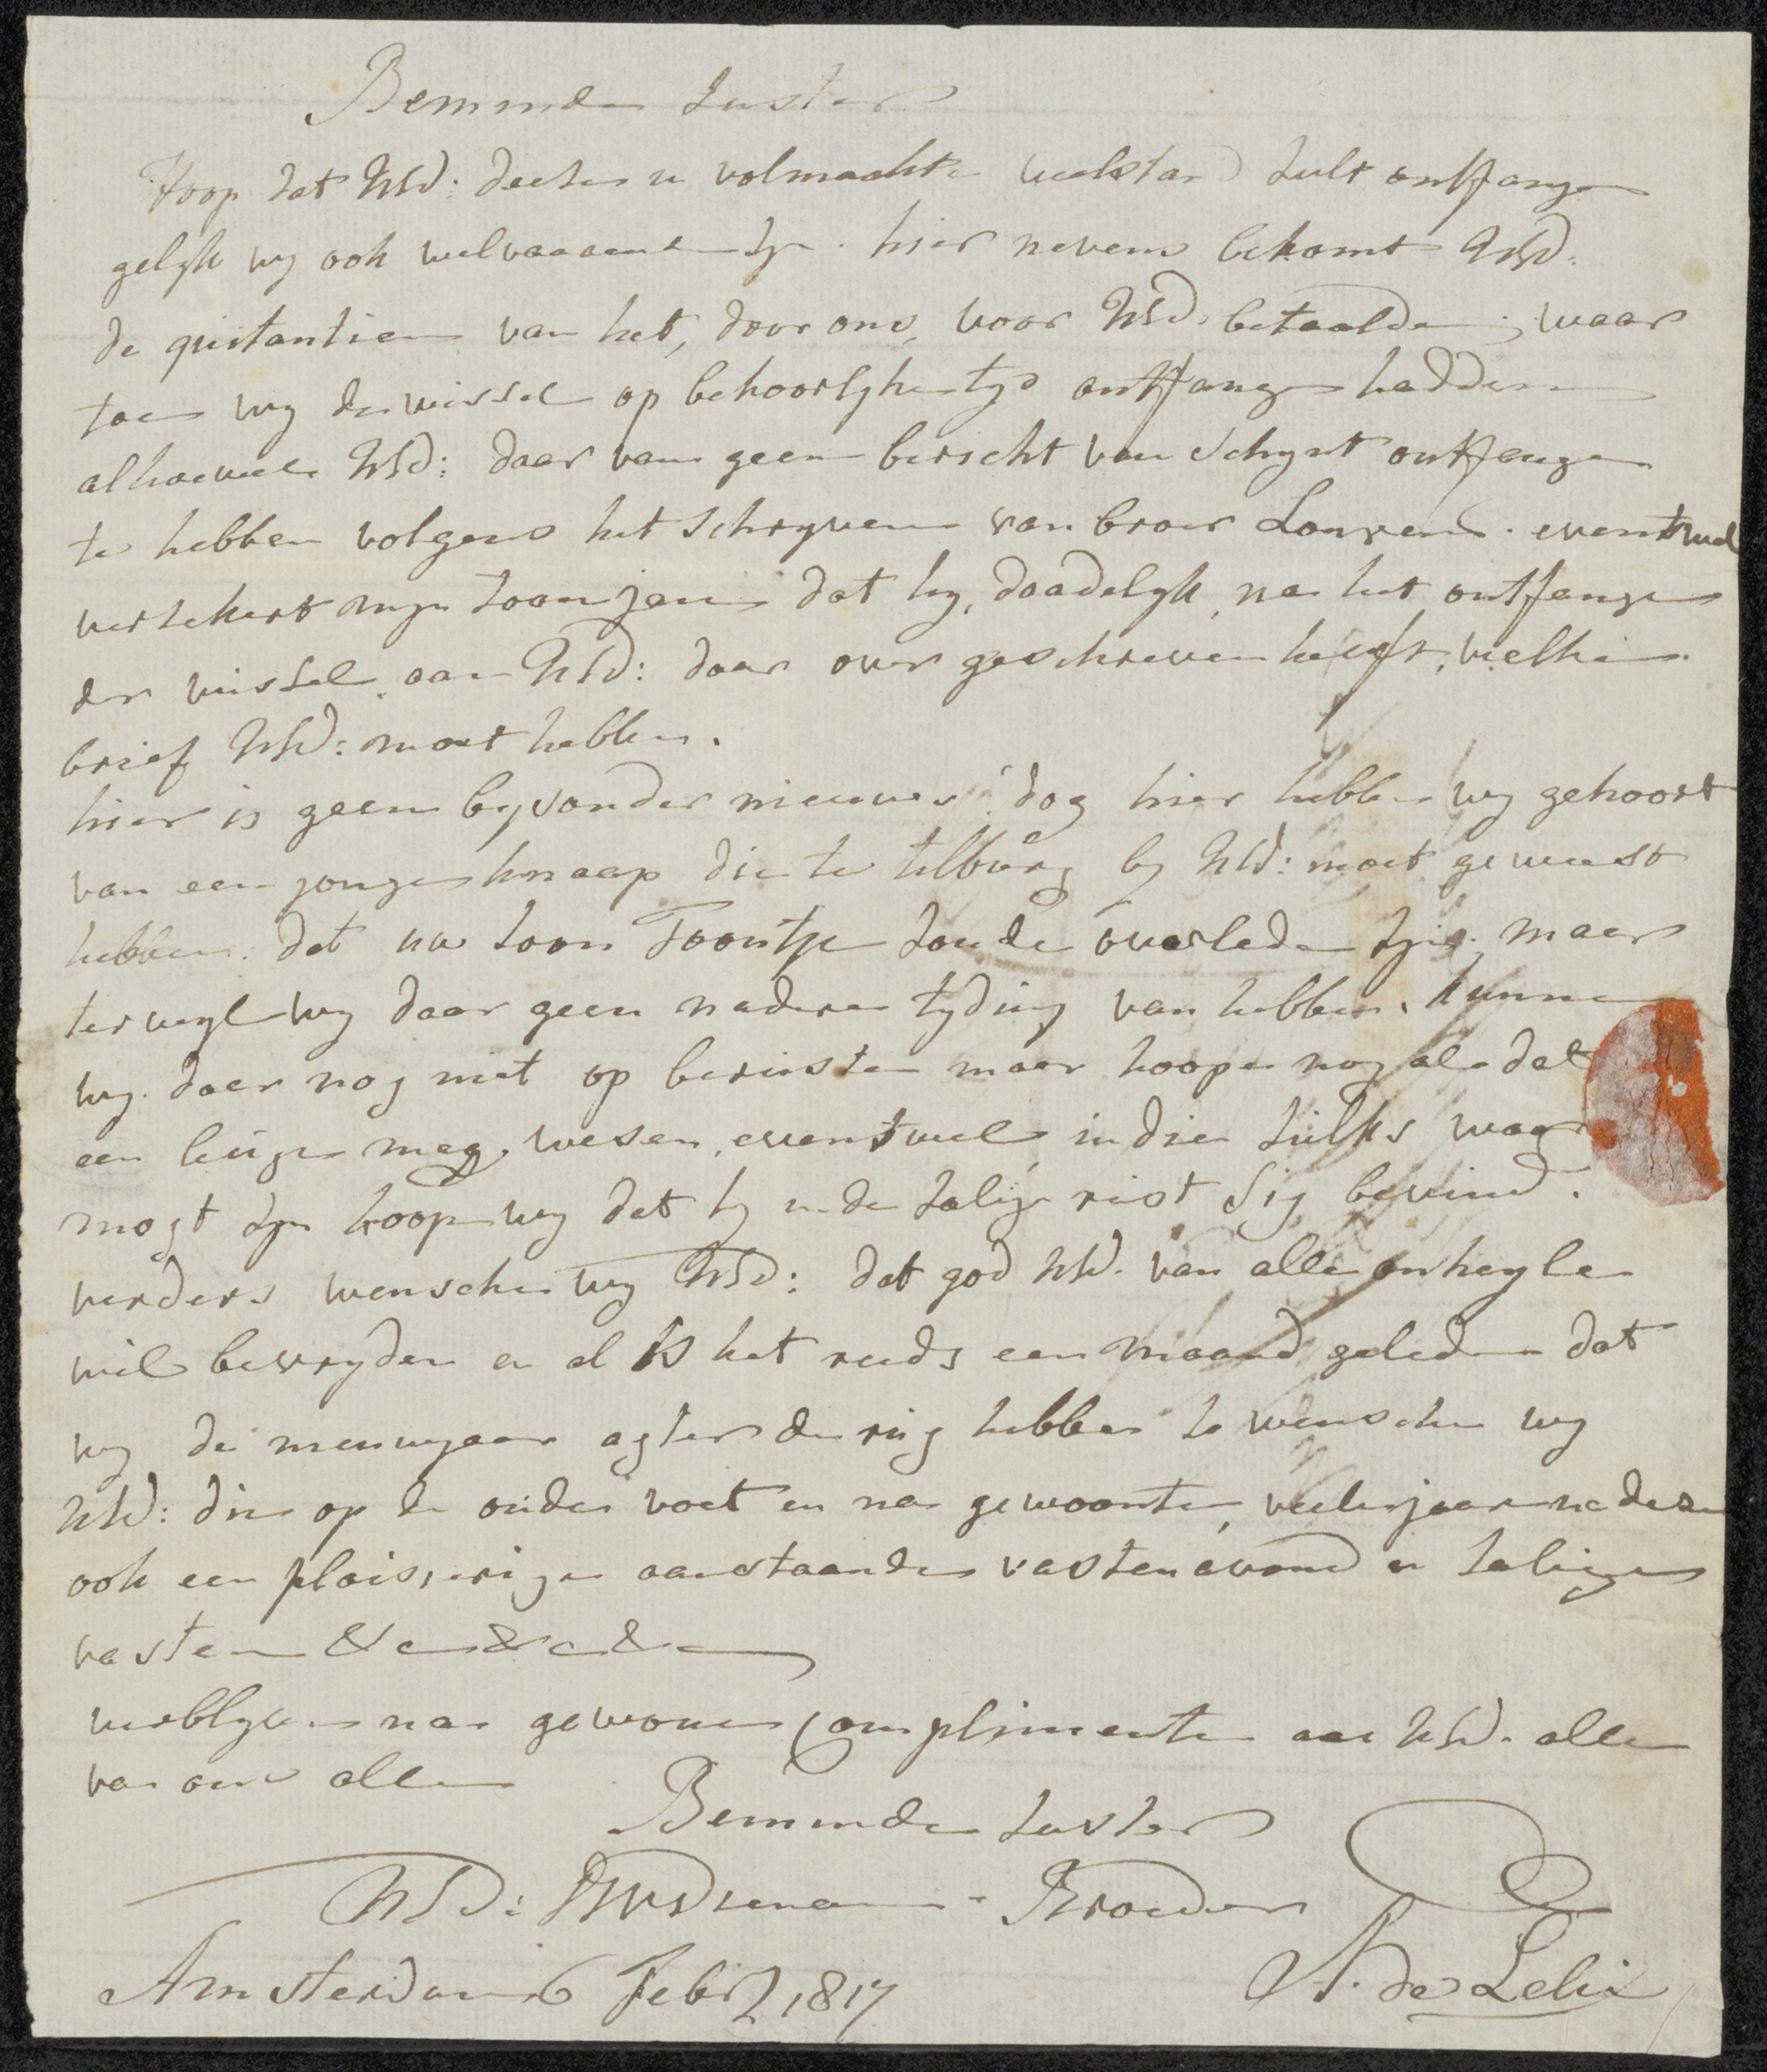 Beminde Zuster
Hoop dat UWd: deeze in volmaakte welstand zult ontfange
gelijk wy ook welvaarende zyn. hier nevens bekomt UWd:
de quitantien van het, door ons, voor UWd. betaalde; waar
toe wy de wissel op behoorlyke tyd ontfangen hadden
alhoewel UWd: daar van geen bericht van schynt ontfangen
te hebben volgens het schryven van broer Louwrens. eventwel
verzekert myn zoon jan dat hy, daadelyk, na het ontfangen
der wissel aan UWd: daar over geschreven heeft, welke
brief UWd: moet hebben.
hier is geen byzonder nieuws: dog hier hebben wy gehoort
van een jonge knaap die te tilburg by UWd: moet geweest
hebben. dat uw zoon Toontje zoude overleden zyn; maar
terwyl wy daar geen nadere tyding van hebben, kunnen
wy daar nog niet op berusten maar hoope nog al dat
een leugen mag wesen, eventwel indien zulks waar
mogt zyn hoope wy dat hy in de zalige rust sig bevind.
verders wensche wy UWd: dat god UWd. van alle onheyle
wil bevryden en al is het reeds een maand geleden dat
wy de nieuwjaar agter de rug hebben zo wensche wy
UWd: die op de oude voet en na gewoonte, veele jaare na deze
ook een plaisierige aanstaande vastenavond en zalige
vasten &c &c &c
verblyve na gewone Complimente aan UWd. alle
van ons alle
Beminde Zuster
UWd: Broeder
Amsterdam 6 Feb: 1817
A. de Lelie